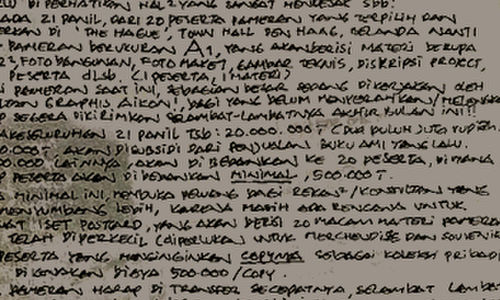 LU DI PERHATIKAN HAL2 YANG SANGAT MENDESAK SBB:
ADA 21 PANIL, DARI 20 PESERTA PAMERAN YANG TERPILIH DAN
ERKAN DI 'THE HAGUE', TOWN HALL DEN HAAG, BELANDA NANTI
PAMERAN BERUKURAN A1, YANG AKAN BERISI MATERI BERUPA
R2, FOTO BANGUNAN, FOTO MAKET, GAMBAR TEKNIS, DISKRIPSI PROJECT,
PESERTA DLSB. (1 PESERTA, 1 MATERI)
PAMERAN SAAT INI, SEBAGIAN BESAR SEDANG DIKERJAKAN OLEH
GRAPHIS AIKON!, BAGI YANG BELUM MENYERAHKAN/
P SEGERA DIKIRIMKAN SELAMBAT-LAMBATNYA AKHIR BULAN INI!!
KESELURUHAN 21 PANIL TSB: 20.000.000 (DUA PULUH JUTA RUPIAH)
AKAN DISUBSIDI DARI PENJUALAN BUKU AMI YANG LALU.
00.000 LAINNYA AKAN DI BEBANKAN KE 20 PESERTA, DIMANA
P PESERTA AKAN DI BEBANKAN MINIMAL, 500.000
MINIMAL INI, MEMBUKA PELUANG BAGI REKAN2/KONSULTAN YANG
MENYUMBANG LEBIH, KARENA MASIH ADA RENCANA UNTUK
UAT 1 SET POSTCARD, YANG AKAN BERISI 20 MACAM MATERI PAMERA
TELAH DIPERKECIL (DIPERLUKAN UNTUK MERCHENDISE DAN SOUVENIR
PESERTA YANG MENGINGINKAN COPYNYA SEBAGAI KOLEKSI PRIBAD
DIKENAKAN BIAYA 500.000/COPY.
PAMERAN HARAP DI TRANSFER SECEPATNYA, SELAMBAT LAMBA